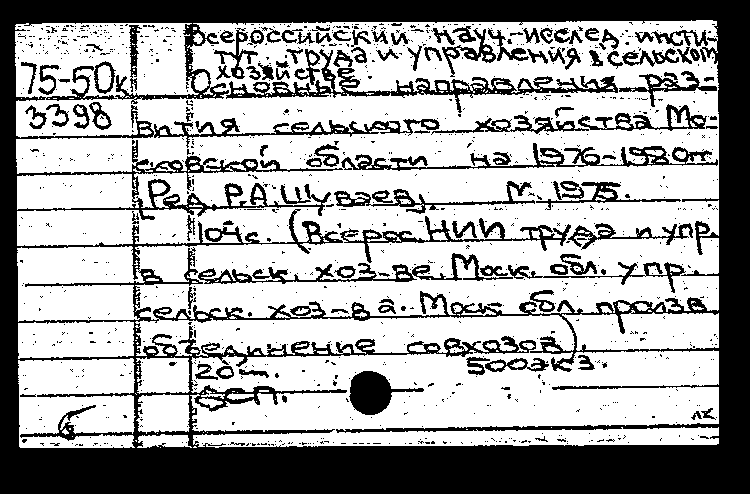 Всероссийский науч.-исслед. инсти-
тут труда и управления в сельском
хозяйстве.
75-50к Основные направления раз-
3398 вития сельского хозяйства Мо-
сковской области на 1976-1980гг.
[Ред. Р.А. Шуваев]. М., 1975.
104с. (Всерос. НИИ труда и упр.
в сельск. хоз-ве. Моск. обл. упр.
сельск. хоз-ва. Моск. обл. произв.
объединение совхозов).
20 500экз.
БСП.